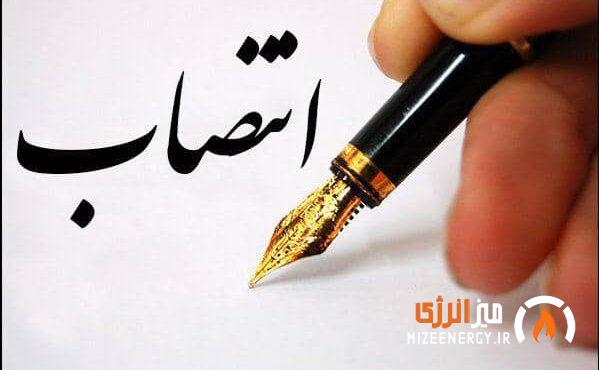 انتصاب
میز انرژی
MIZEENERGY.IR